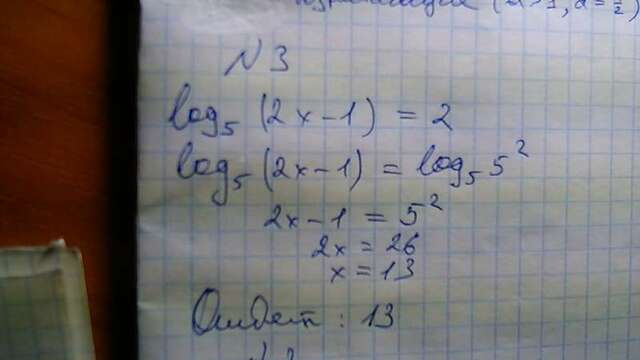 (a>1, a=½)
N 3
log₅ (2x-1) = 2
log₅ (2x-1) = log₅ 5²
2x-1 = 5²
2x = 26
x = 13
Ответ: 13